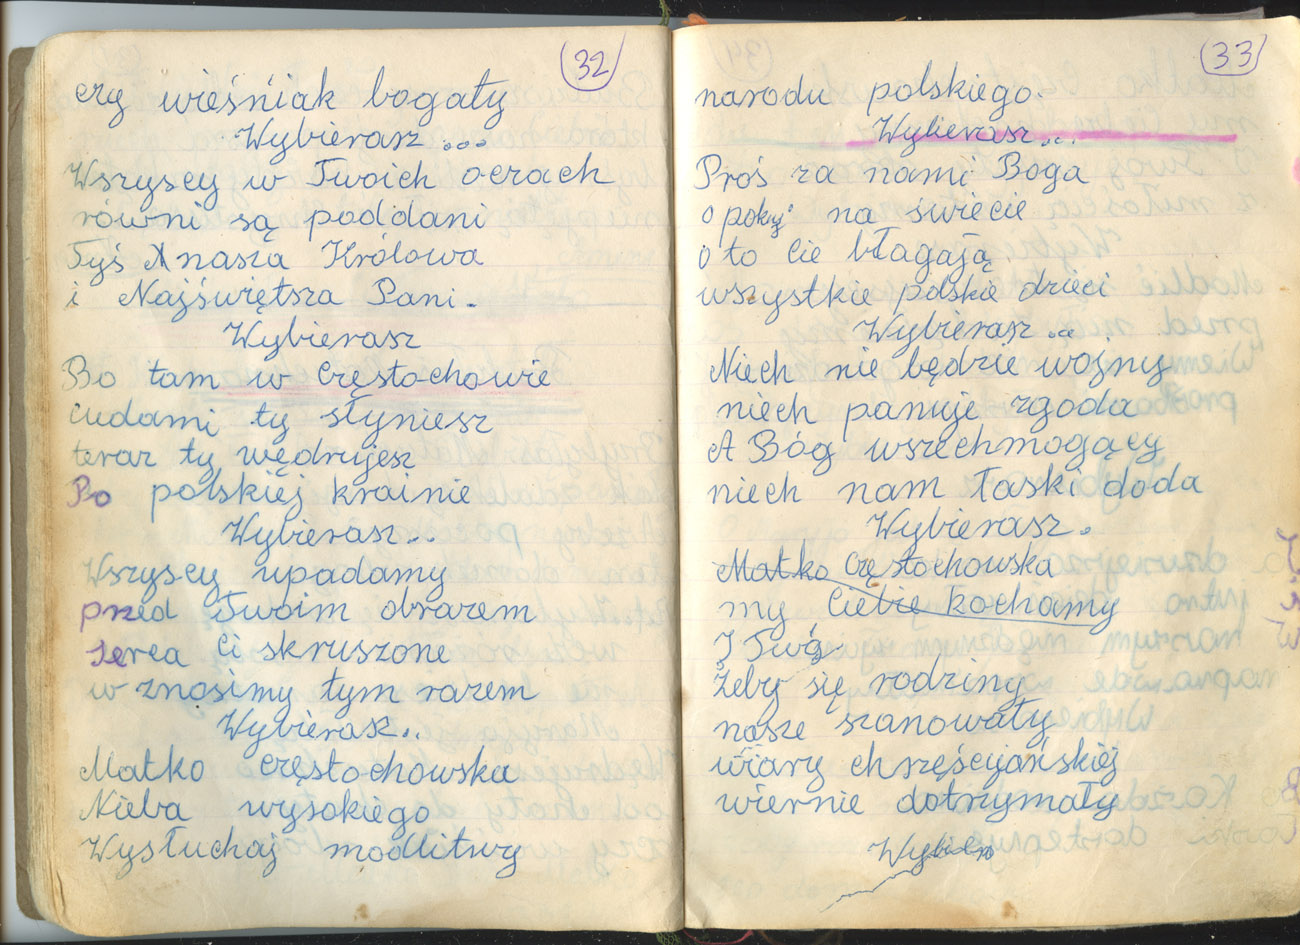 32
czy wieśniak bogaty
Wybierasz...
Wszyscy w Twoich oczach
równi są poddani
Tyś nasza Królowa
i Najświętsza Pani.
Wybierasz
Bo tam w Częstochowie
Cudami ty słyniesz
teraz ty wędrujesz
Po polskiej krainie
Wybierasz...
Wszyscy upadamy
przed Twoim obrazem
Serca Ci skruszone
w znosimy tym razem
Wybierasz..
Matko Częstochowska
Nieba wysokiego
Wysłuchaj modlitwy
33
narodu polskiego.
Wybierasz...
Proś za nami Boga
o pokój na świecie
o to Cie błagają
wszystkie polskie dzieci
Wybierasz...
Niech nie będzie wojny
niech panuje zgoda
A Bóg wszechmogący
niech nam łaski doda
Wybierasz.
Matko Częstochowska
my Ciebie kochamy
I Twój
Żeby się rodziny
nasze szanowały
wiary chrześcijańskiej
wiernie dotrzymały